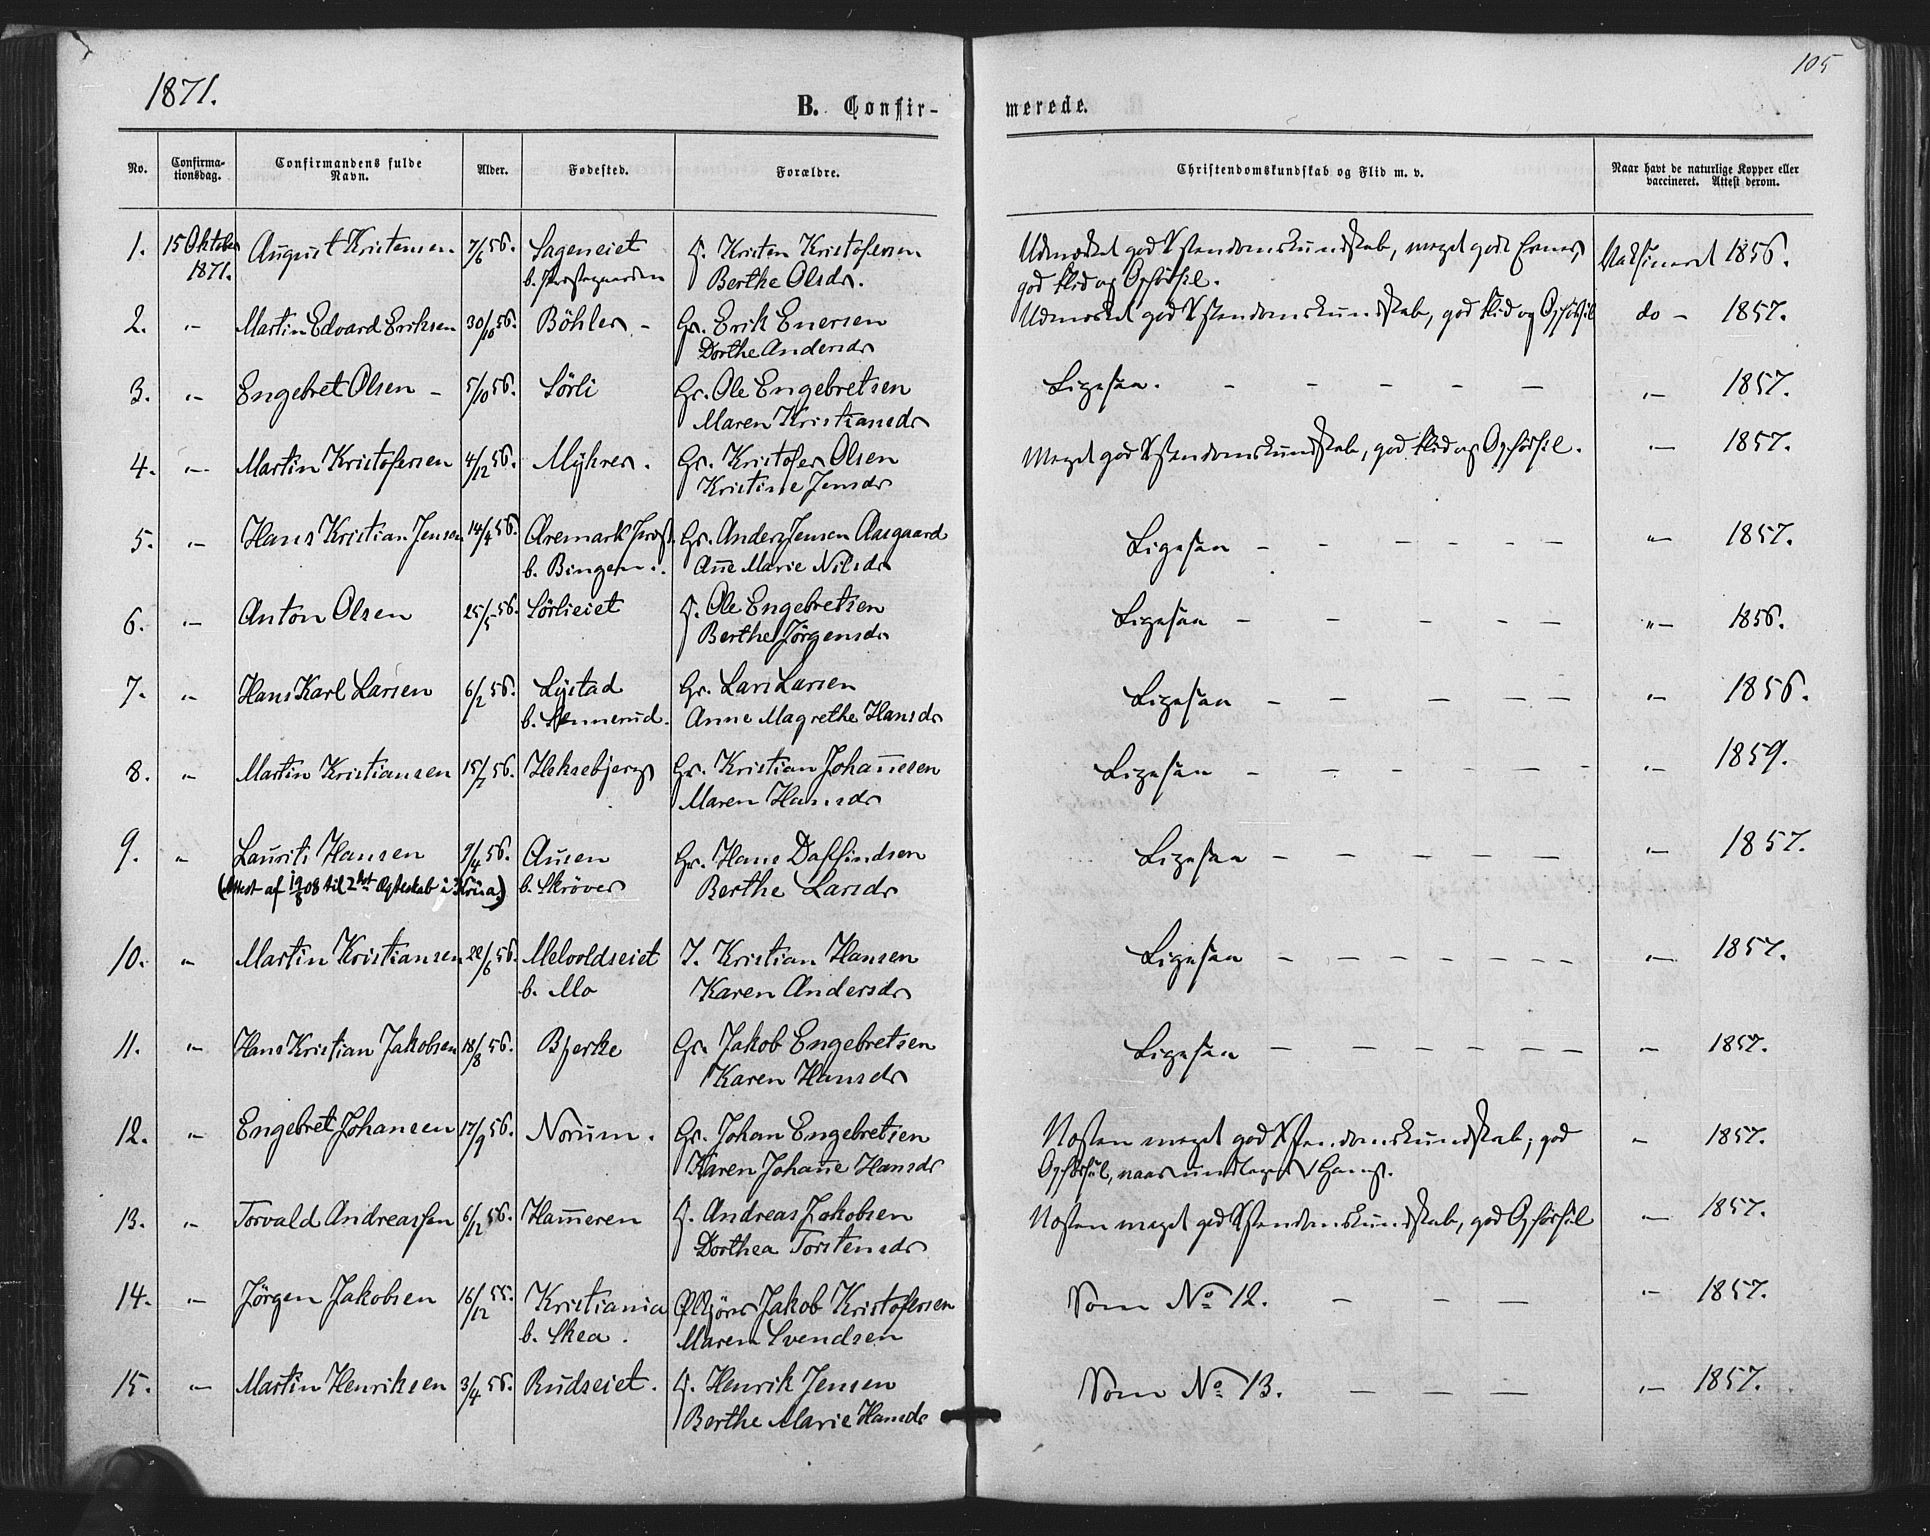 1871.
105
B. Confir-
merede.
No. Confirma-tionsdag. Confirmandens fulde Navn. Alder. Fødested. Forældre. Christendomskundskab og Flid m. v. Naar havt de naturlige Kopper eller vaccineret. Attest derom.
1. 15 Oktober August Kristensen. 7/6 56. Sageneiet Kristen Kristofersen Udmærket god Xstendomskundskab, meget gode Evner, Vaksineret 1856.
1871. b. Prestegaarden Berthe Olsdr. god Flid og Opførsel.
2. " Martin Edvard Eriksen 30/10 56. Böhler - Gr. Erik Enersen Udmærket god Xstendomskundskab, god Flid og Opførsel do - 1857.
Dorthe Andersdr
3. " Engebret Olsen - 5/10 56. Sörli Gr. Ole Engebretsen Ligesaa. - - - - - " 1857.
Maren Kristiansdr
4. " Martin Kristofersen 4/12 56. Myhrer. Gr. Kristofer Olsen Meget god Xstendomskundskab, god Flid og Opførsel. " 1857.
Kristine Jensdr
5. " Hans Kristian Jensen 14/4 56. Aremark Præst. Gr. Anders Jensen Aasgaard Ligesaa - - - - - - " 1857.
b. Bingen. Anne Marie Nilsdr
6. " Anton Olsen 25/5 56. Sörlieiet Ole Engebretsen Ligesaa - - - - - " 1856.
Berthe Jörgensdr
7. " Hans Karl Larsen 6/2 56. Lystad Gr. Lars Larsen Ligesaa - - - - - " 1856.
b. Sennerud. Anne Magrethe Hansdr
8. " Martin Kristiansen 15/7 56. Heksebjerg Gr. Kristian Johannesen Ligesaa - - - - - - " 1859.
Maren Hansdr
9. " Laurits Hansen 9/4 56. Ausen Gr. Hans Dalfindsen Ligesaa - - - - - - " 1857.
(Attest af 1908 til 2det Ægteskab i Kr.ia.) b. Skröver Berthe Larsdr
10. " Martin Kristiansen 22/6 56. Melvoldseiet I. Kristian Hansen Ligesaa - - - - - - - " 1857.
b. Mo Karen Andersdr
11. " Hans Kristian Jakobsen 18/8 56. Bjerke Gr. Jakob Engebretsen Ligesaa - - - - - - - " 1857.
Karen Hansdr
12. " Engebret Johansen 17/9 56. Norum. Gr. Johan Engebretsen Næsten meget god Xstendomskundskab, god " 1857.
Karen Johanne Hansdr Opførsel, naar undtages 1 Gang.
13. " Torvald Andreassen 6/12 56. Hammeren Andreas Jakobsen Næsten meget god Xstendomskundskab, god Opførsel " 1857.
Dorthea Torstensdr
14. " Jörgen Jakobsen 16/12 55. Kristiania Jakob Kristofersen Som No 12. - - - " 1857.
b. Skea. Maren Svendsen
15. " Martin Henriksen 3/4 56. Rudseiet. Henrik Jensen Som No 13. - - - " 1857.
Berthe Marie Hansdr